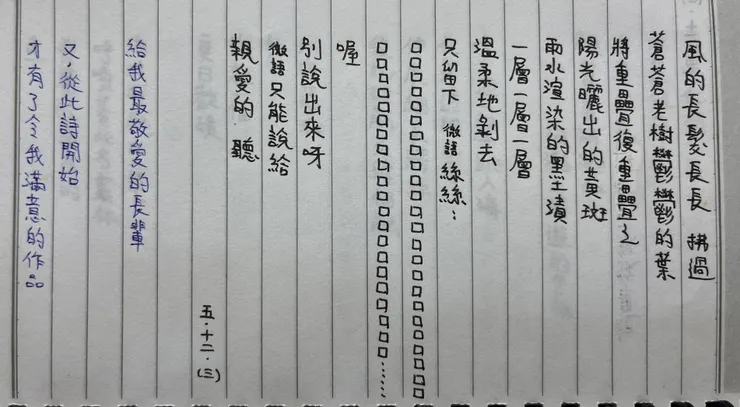 風的長髮長長 拂過
蒼蒼老樹鬱鬱的葉
將重疊復重疊之
陽光曬出的黃斑
雨水渲染的黑土漬
一層一層一層
溫柔地剝去
只留下 微語絲絲：
□□□□□□□□□□□□□□□□□□□□□□□□
□□□□□□□□□□□□□□□□□□□□□……
喔
別說出來呀
微語只能說給
親愛的．聽
五．十二．(三)
給我最敬愛的長輩
又，從此詩開始
才有了令我滿意的作品